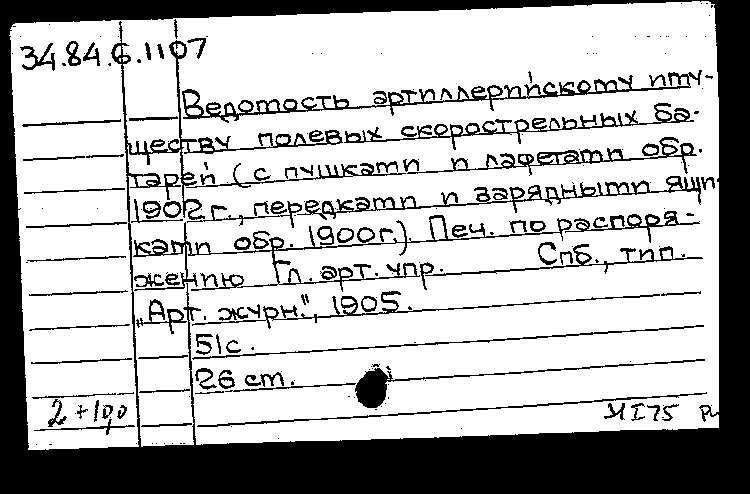 34.84.6.1107
Ведомость артиллерийскому иму-
ществу полевых скорострельных ба-
тарей (с пушками и лафетами обр.
1902 г., передками и зарядными ящи-
ками обр. 1900 г.). Печ. по распоря-
жению Гл. арт. упр. Спб., тип.
„Арт. журн.", 1905.
51 с.
26 см.
2 + 1до МI75